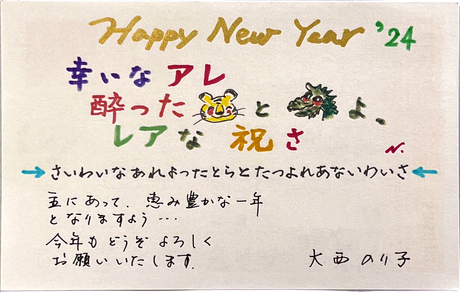 Happy New Year '24
幸いな アレ
酔った と よ、
レアな 祝さ
N.
さいわいなあれよったとらとたつよれあないわいさ
互にあって、恵み豊かな一年
となりますよう…
今年もどうぞよろしく
お願いいたします.
大西のり子